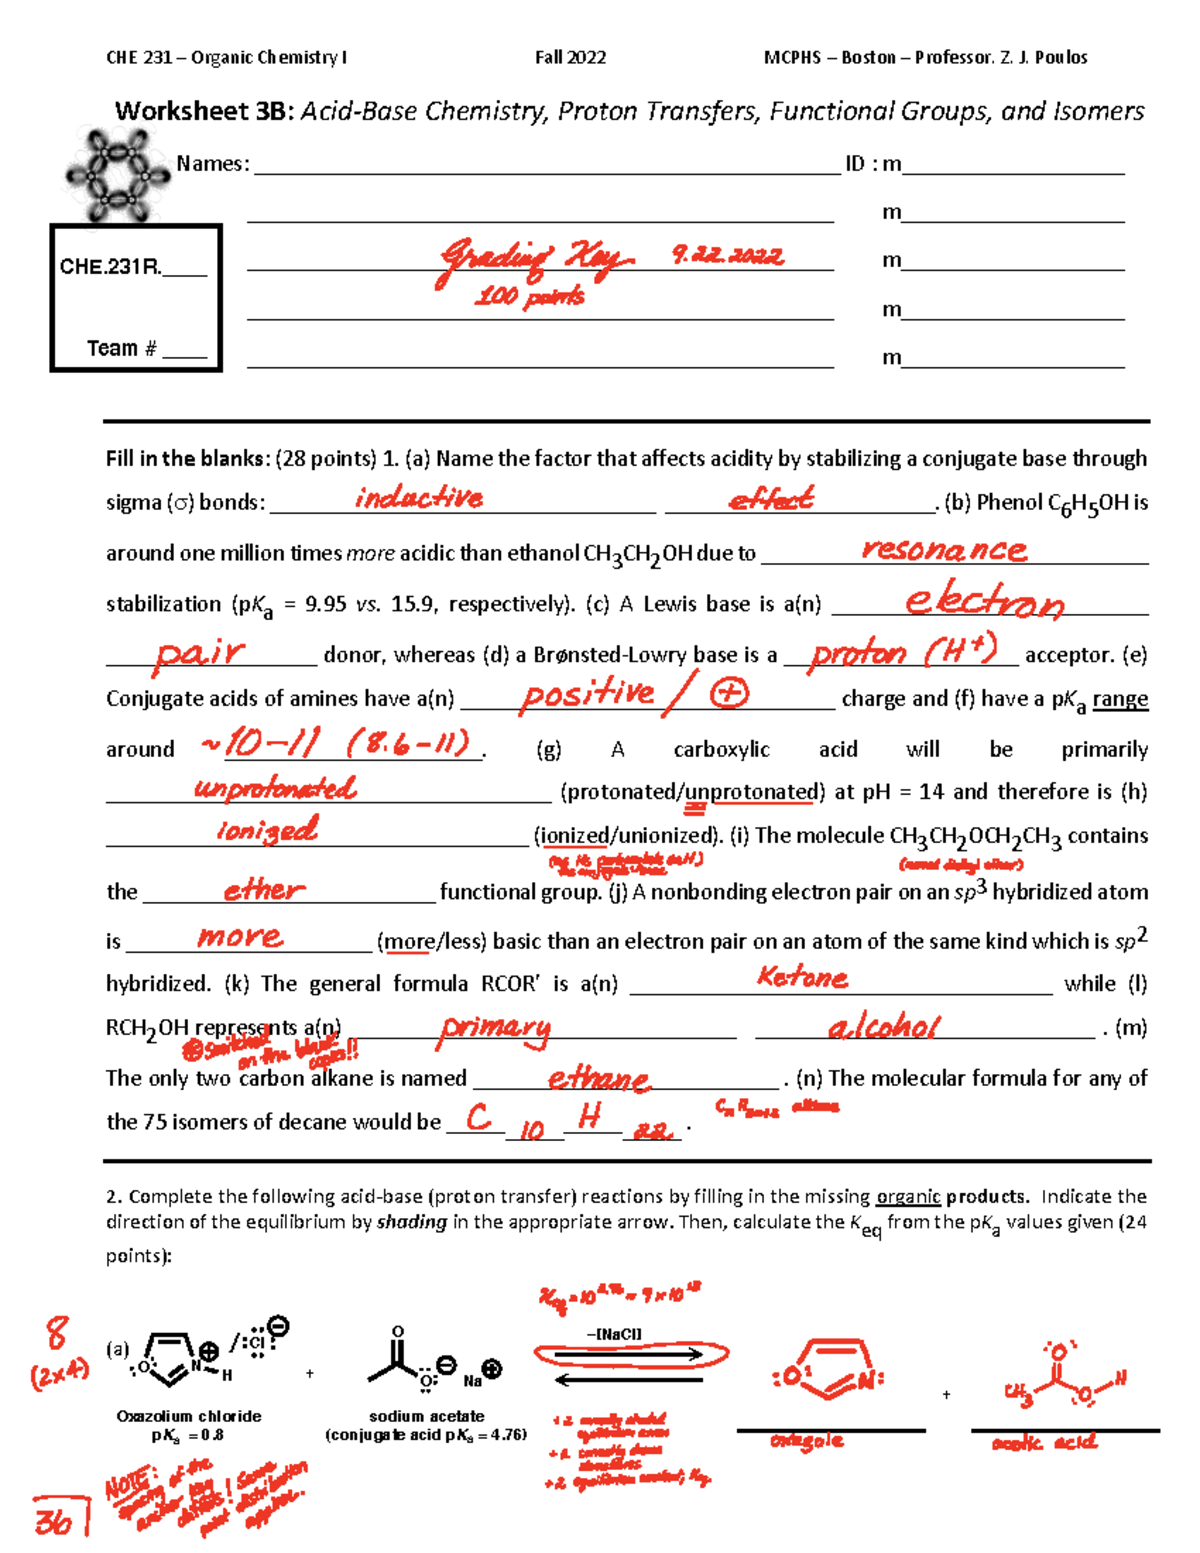 CHE 231 – Organic Chemistry I Fall 2022 MCPHS – Boston – Professor. Z. J. Poulos
Worksheet 3B: Acid-Base Chemistry, Proton Transfers, Functional Groups, and Isomers
Names: ID : m
m
CHE.231R. Grading Key 9.22.2022 m
100 points m
Team # m
Fill in the blanks: (28 points) 1. (a) Name the factor that affects acidity by stabilizing a conjugate base through
sigma (σ) bonds: inductive effect . (b) Phenol C6H5OH is
around one million times more acidic than ethanol CH3CH2OH due to resonance
stabilization (pKa = 9.95 vs. 15.9, respectively). (c) A Lewis base is a(n) electron
pair donor, whereas (d) a Brønsted-Lowry base is a proton (H+) acceptor. (e)
Conjugate acids of amines have a(n) positive / ⊕ charge and (f) have a pKa range
around ~10-11 (8.6-11) . (g) A carboxylic acid will be primarily
unprotonated (protonated/unprotonated) at pH = 14 and therefore is (h)
ionized (ionized/unionized). (i) The molecule CH3CH2OCH2CH3 contains
the ether functional group. (j) A nonbonding electron pair on an sp3 hybridized atom
is more (more/less) basic than an electron pair on an atom of the same kind which is sp2
hybridized. (k) The general formula RCOR′ is a(n) Ketone while (l)
RCH2OH represents a(n) primary alcohol . (m)
⊕ Switched on the blank copies!!
The only two carbon alkane is named ethane . (n) The molecular formula for any of
the 75 isomers of decane would be C 10 H 22 .
2. Complete the following acid-base (proton transfer) reactions by filling in the missing organic products. Indicate the
direction of the equilibrium by shading in the appropriate arrow. Then, calculate the Keq from the pKa values given (24
points):
8
(2x4)
(a) O N H / :Cl: ⊖ + O O: ⊖ Na ⊕ –[NaCl] :O: N: + CH3 O O H
Oxazolium chloride sodium acetate
pKa = 0.8 (conjugate acid pKa = 4.76) oxazole acetic acid
NOTE:
36